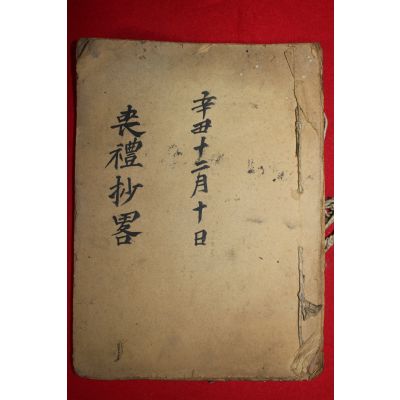 辛丑十二月十日
喪禮抄畧